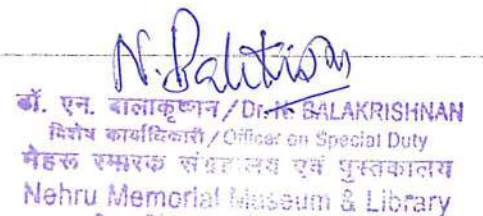 N. Balakrishnan
डॉ. एन. बालाकृष्णन / Dr. N. BALAKRISHNAN
विशेष कार्याधिकारी / Officer on Special Duty
नेहरू स्मारक संग्रहालय एवं पुस्तकालय
Nehru Memorial Museum & Library